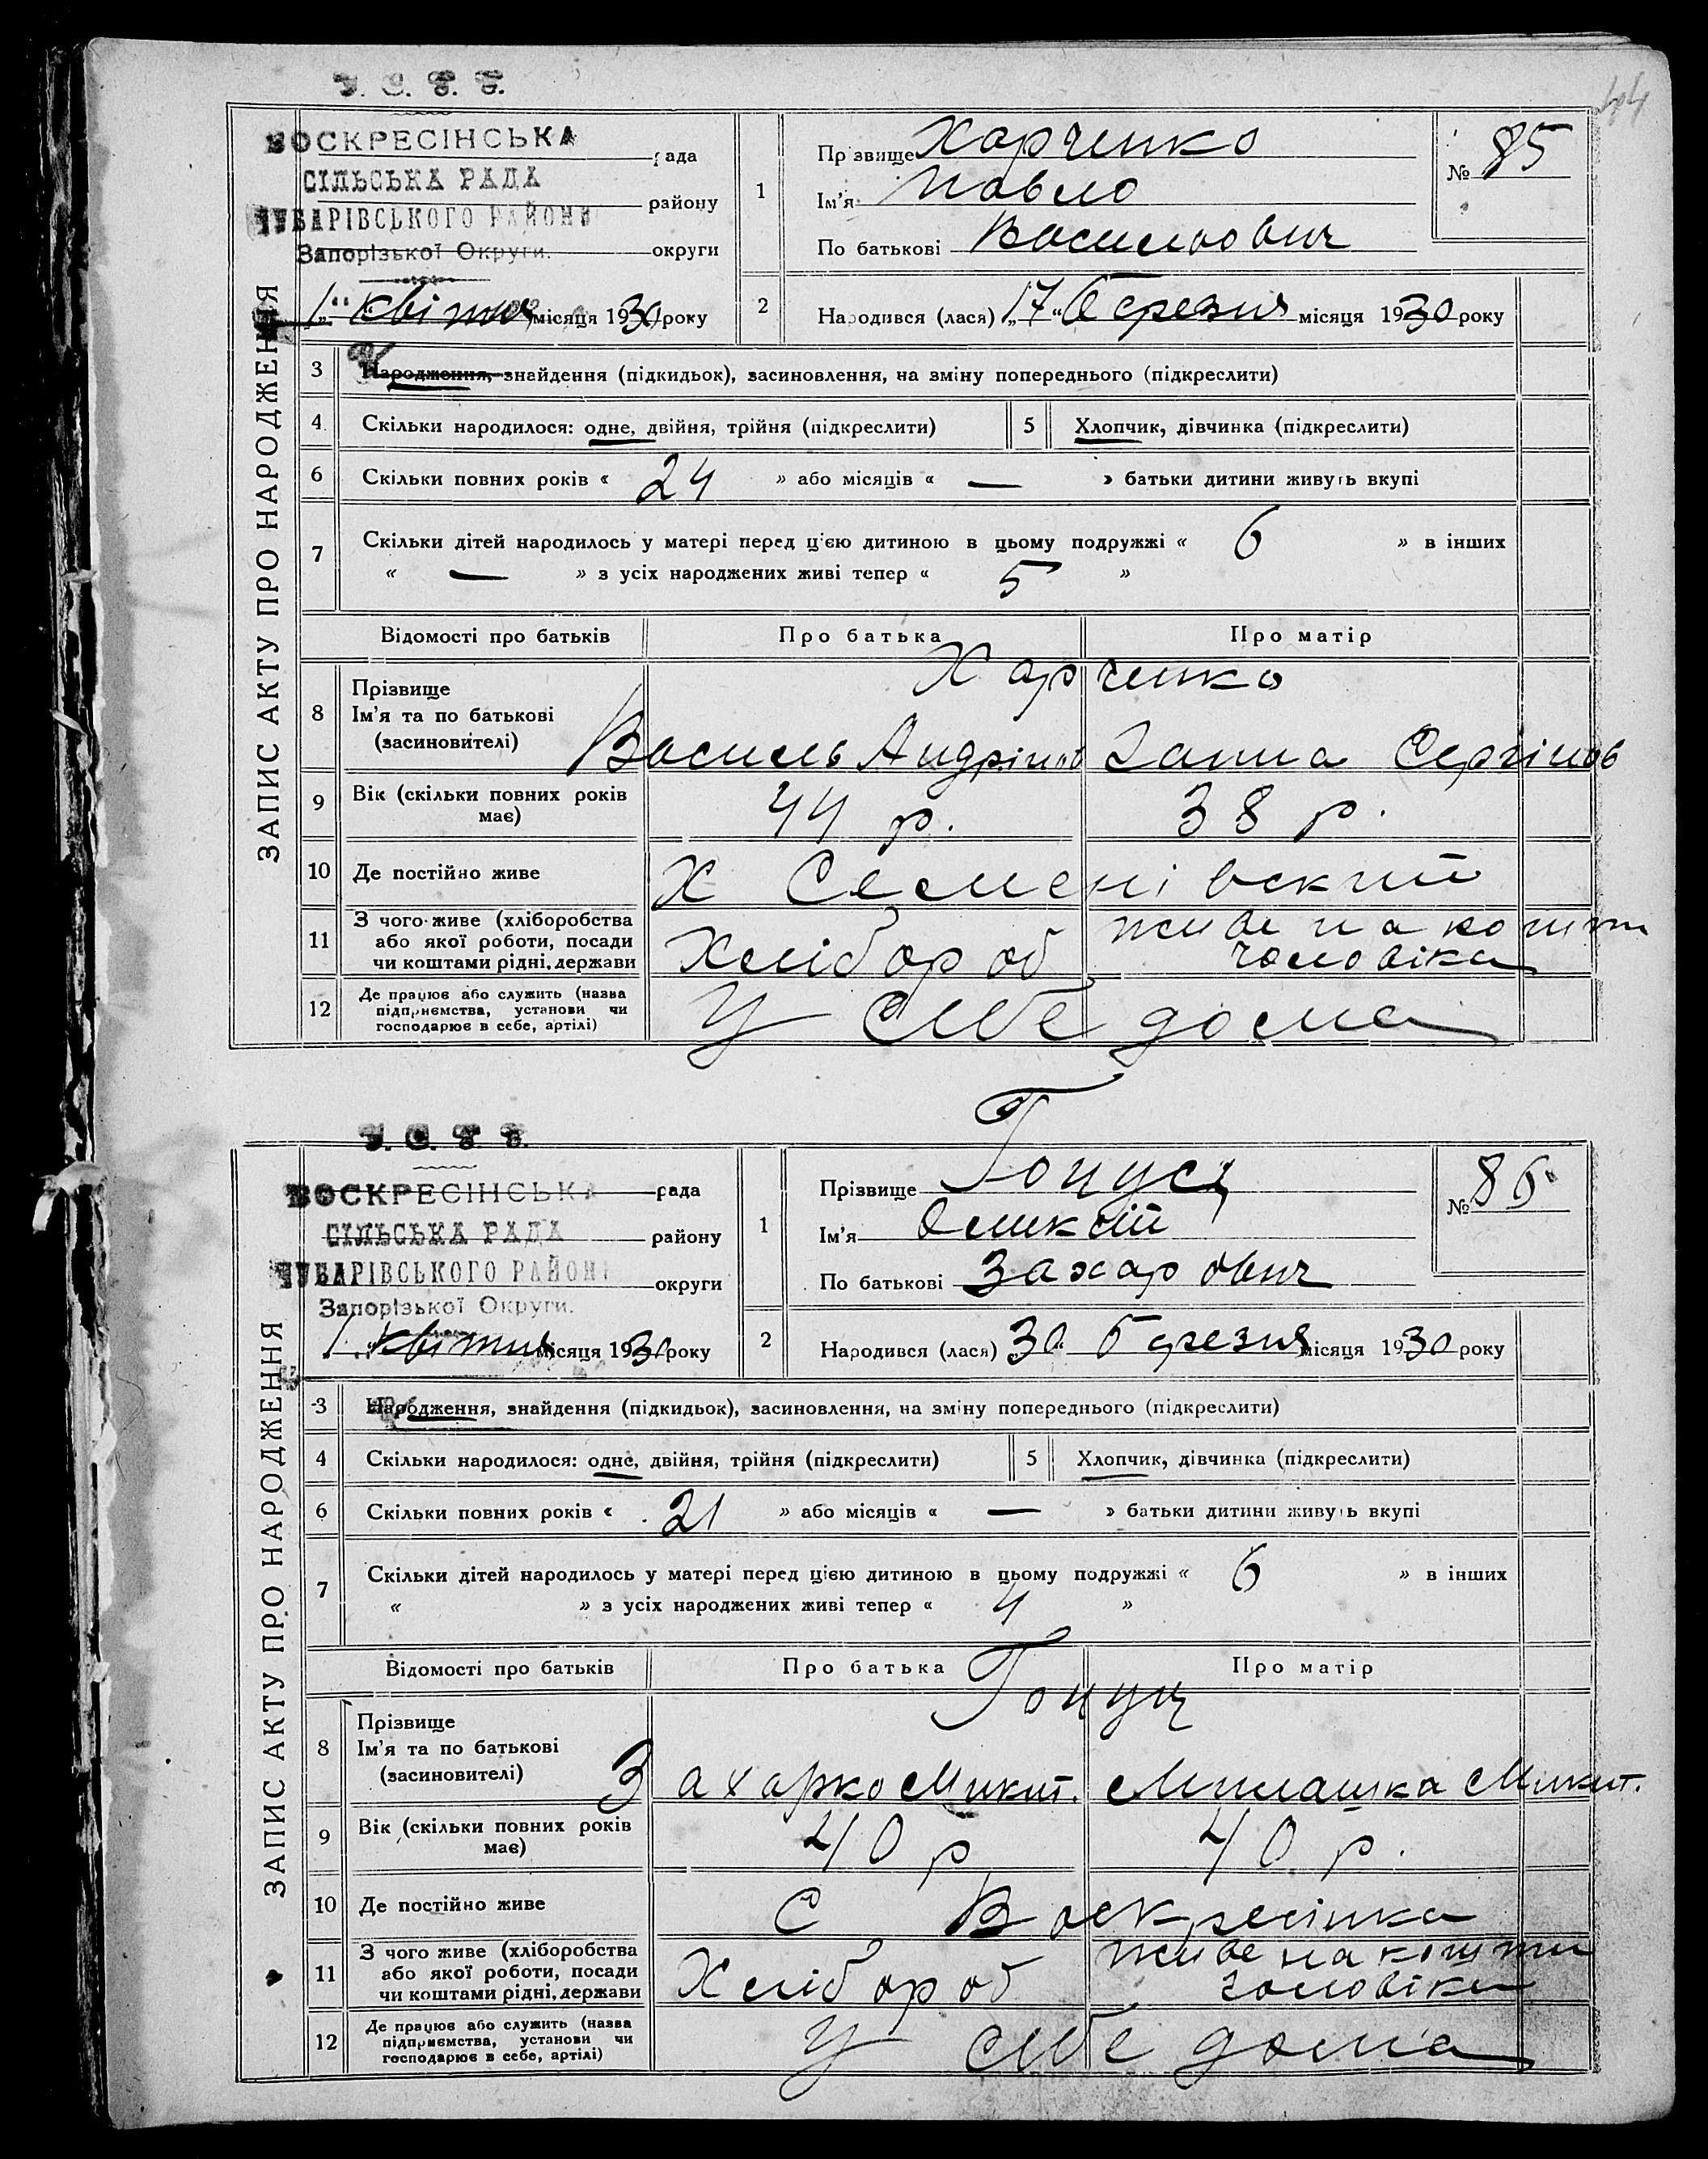 44
У. С. Р. Р.
ВОСКРЕСІНСЬКА рада
СІЛЬСЬКА РАДА району
ЧУБАРІВСЬКОГО РАЙОНУ
Запорізької Округи. округи
„1“ квітня місяця 1930 року
ЗАПИС АКТУ ПРО НАРОДЖЕННЯ
1 Прізвище Харченко
Ім'я Павло
По батькові Васильович
№ 85
2 Народився (лася) „17“ березня місяця 1930 року
3 Народження, знайдення (підкидьок), засиновлення, на зміну попереднього (підкреслити)
4 Скільки народилося: одне, двійня, трійня (підкреслити) 5 Хлопчик, дівчинка (підкреслити)
6 Скільки повних років « 24 » або місяців « — » батьки дитини живуть вкупі
7 Скільки дітей народилось у матері перед цією дитиною в цьому подружжі « 6 » в інших
« — » з усіх народжених живі тепер « 5 »
Відомості про батьків Про батька Про матір
8 Прізвище Харченко
Ім'я та по батькові
(засновителі) Василь Андріїов Ганна Сергіїов
9 Вік (скільки повних років має) 44 р. 38 р.
10 Де постійно живе Х Семенівский
11 З чого живе (хліборобства або якої роботи, посади чи коштами рідні, держави Хлібороб живе на кошти чоловіка
12 Де працює або служить (назва підприємства, установи чи господарює в себе, артілі) У себе дома
У. С. Р. Р.
ВОСКРЕСІНСЬКА рада
СІЛЬСЬКА РАДА району
ЧУБАРІВСЬКОГО РАЙОНУ округи
Запорізької Округи.
1 квітня місяця 1930 року
ЗАПИС АКТУ ПРО НАРОДЖЕННЯ
1 Прізвище
Ім'я Олексій
По батькові Захарович
№ 86
2 Народився (лася) 30 березня місяця 1930 року
3 Народження, знайдення (підкидьок), засиновлення, на зміну попереднього (підкреслити)
4 Скільки народилося: одне, двійня, трійня (підкреслити) 5 Хлопчик, дівчинка (підкреслити)
6 Скільки повних років « 21 » або місяців « — » батьки дитини живуть вкупі
7 Скільки дітей народилось у матері перед цією дитиною в цьому подружжі « 6 » в інших
« » з усіх народжених живі тепер « 4 »
Відомості про батьків Про батька Про матір
8 Прізвище
Ім'я та по батькові
(засиновителі) Захарко Микит. Милашка Микит.
9 Вік (скільки повних років має) 40 р 40 р.
10 Де постійно живе С Воскресінка
11 З чого живе (хліборобства або якої роботи, посади чи коштами рідні, держави Хлібороб живе на кошти чоловіка
12 Де працює або служить (назва підприємства, установи чи господарює в себе, артілі) У себе дома